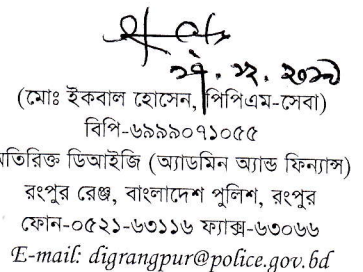 (মোঃ ইকবাল হোসেন, পিপিএম-সেবা)
বিপি-৬৯৯৯০৭১০৫৫
অতিরিক্ত ডিআইজি (অ্যাডমিন অ্যান্ড ফিন্যান্স)
রংপুর রেঞ্জ, বাংলাদেশ পুলিশ, রংপুর
ফোন-০৫২১-৬৩১১৬ ফ্যাক্স-৬৩০৬৬
E-mail: digrangpur@police.gov.bd